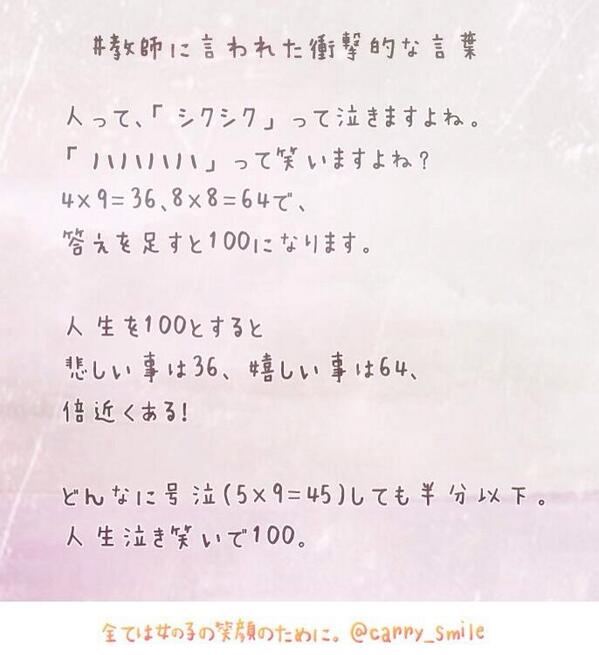 #教師に言われた衝撃的な言葉
人って、「シクシク」って泣きますよね。
「ハハハハ」って笑いますよね?
4×9=36、8×8=64で、
答えを足すと100になります。
人生を100とすると
悲しい事は36、嬉しい事は64、
倍近くある!
どんなに号泣(5×9=45)しても半分以下。
人生泣き笑いで100。
全ては女の子の笑顔のために。@carry_smile